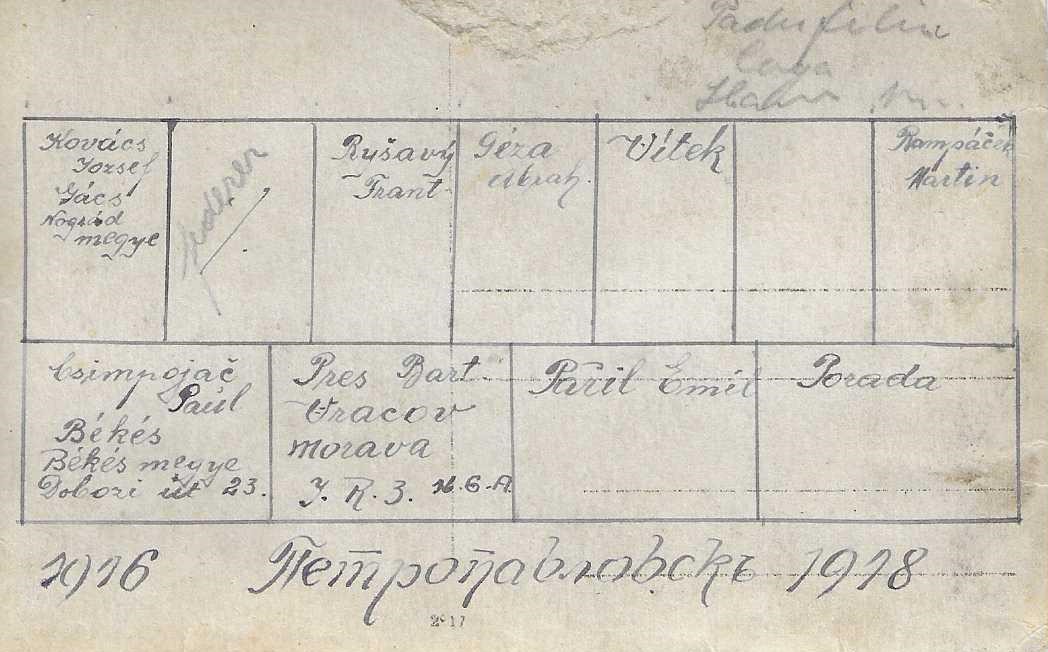 Kovács
Jozsef
Gács
Nográd
megye
Federer
Ryšavý
Frant
Géza
Abrah.
Vítek
Rampáček
Martin
Csimpojač
Paul
Békés
Békés megye
Dobozi út 23.
Pres Bart
Vracov
Morava
J. R. 3.
Pařil Emil
Porada
1916 Петропавловскъ 1918